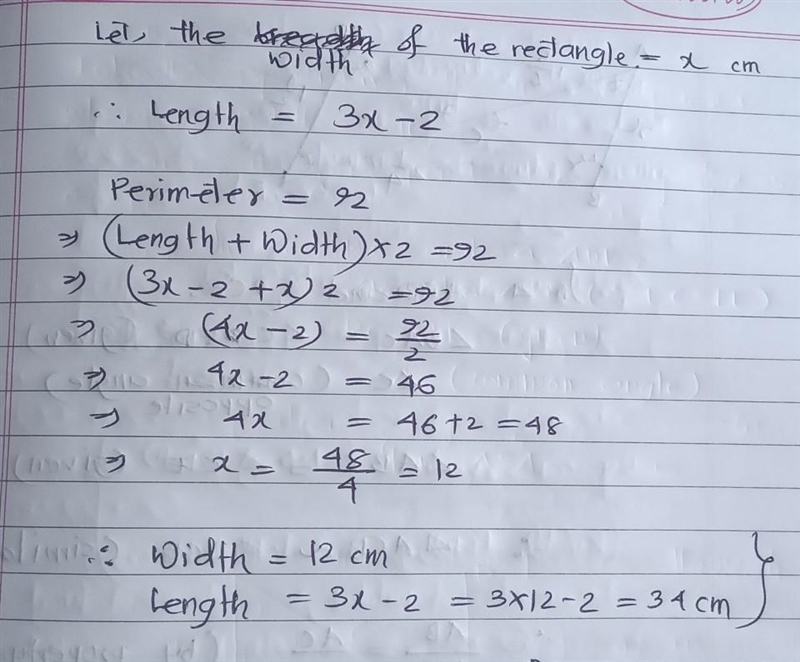 Let, the width of the rectangle = x cm
∴ Length = 3x - 2
Perimeter = 92
⇒ (Length + Width) × 2 = 92
⇒ (3x - 2 + x) 2 = 92
⇒ (4x - 2) = 92/2
⇒ 4x - 2 = 46
⇒ 4x = 46 + 2 = 48
⇒ x = 48/4 = 12
∴ Width = 12 cm
Length = 3x - 2 = 3×12 - 2 = 34 cm }